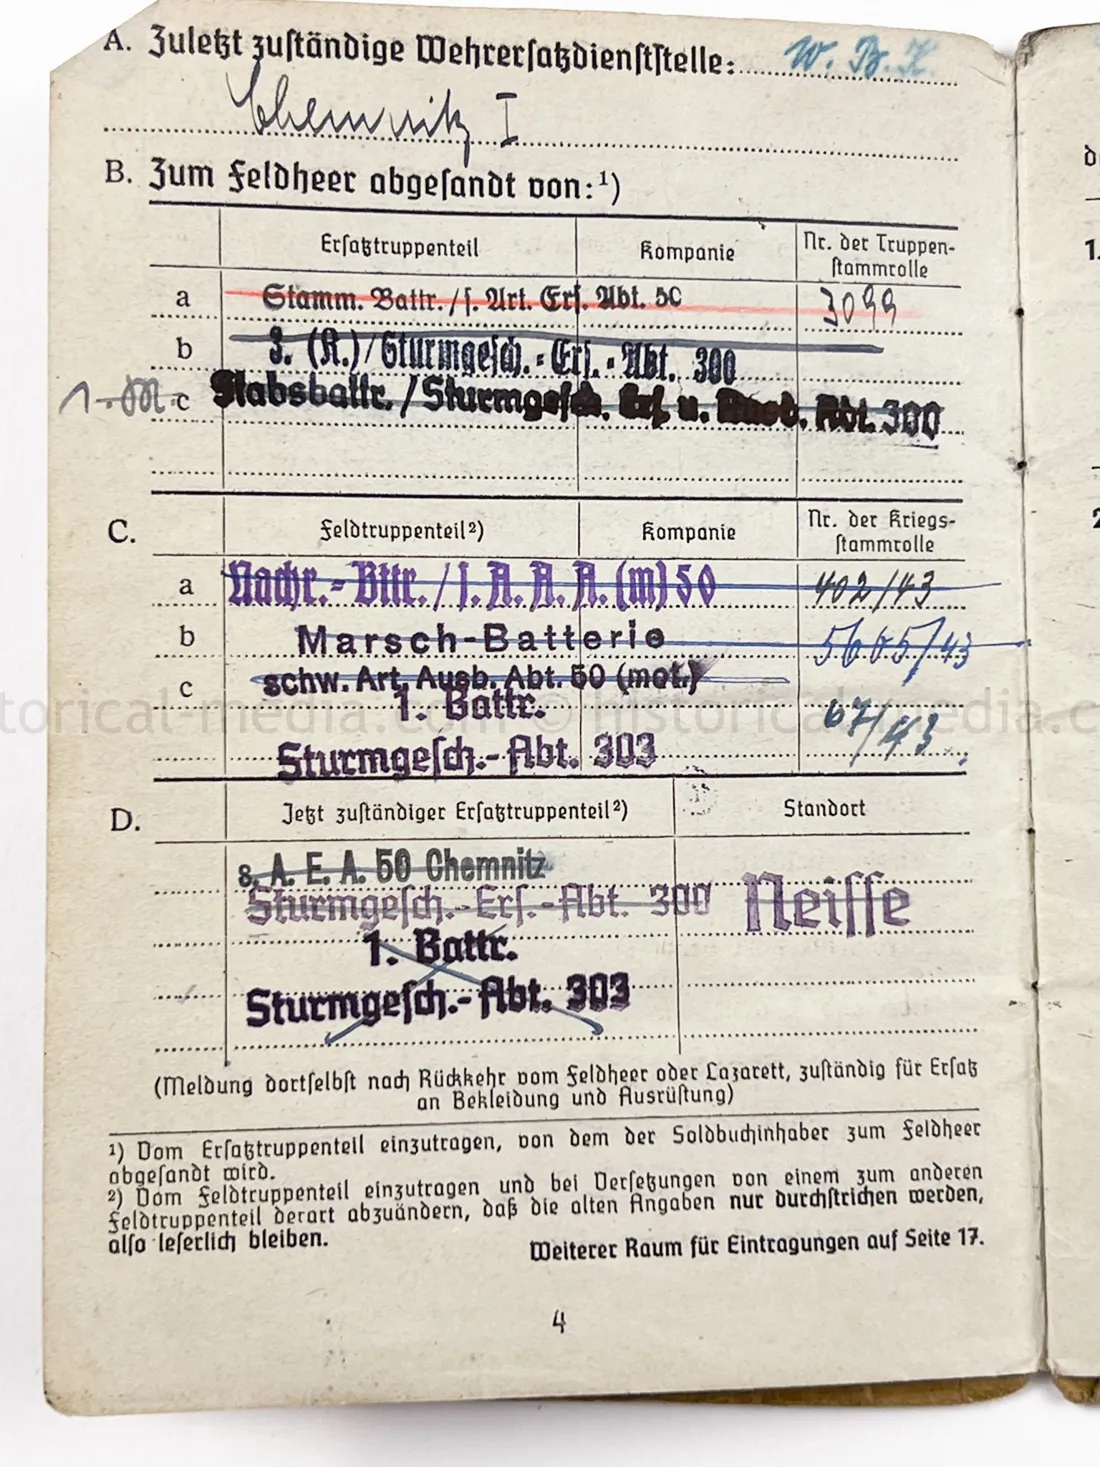 A. Zuletzt zuständige Wehrersatzdienststelle: W. B. K.
Chemnitz I
B. Zum Feldheer abgesandt von:¹)
Ersatztruppenteil Kompanie Nr. der Truppen-
stammrolle
a Stamm. Battr. / s. Art. Ers. Abt. 50 3099
b 3. (R.) / Sturmgesch.-Ers.-Abt. 300
c Stabsbattr. / Sturmgesch. Ers. u. Ausb. Abt. 300
C. Feldtruppenteil²) Kompanie Nr. der Kriegs-
stammrolle
a Nachr.-Bttr. / s. A. A. A. (m) 50 402/43
b Marsch-Batterie 5605/43
c schw. Art. Ausb. Abt. 50 (mot.)
1. Battr. 67/43
Sturmgesch.-Abt. 303
D. Jetzt zuständiger Ersatztruppenteil²) Standort
s. A. E. A. 50 Chemnitz
Sturmgesch.-Ers.-Abt. 300 Neisse
1. Battr.
Sturmgesch.-Abt. 303
(Meldung dortselbst nach Rückkehr vom Feldheer oder Lazarett, zuständig für Ersatz
an Bekleidung und Ausrüstung)
¹) Vom Ersatztruppenteil einzutragen, von dem der Soldbuchinhaber zum Feldheer
abgesandt wird.
²) Vom Feldtruppenteil einzutragen und bei Versetzungen von einem zum anderen
Feldtruppenteil derart abzuändern, daß die alten Angaben nur durchstrichen werden,
also leserlich bleiben.
Weiterer Raum für Eintragungen auf Seite 17.
4
torical-media.com © historical-media.c